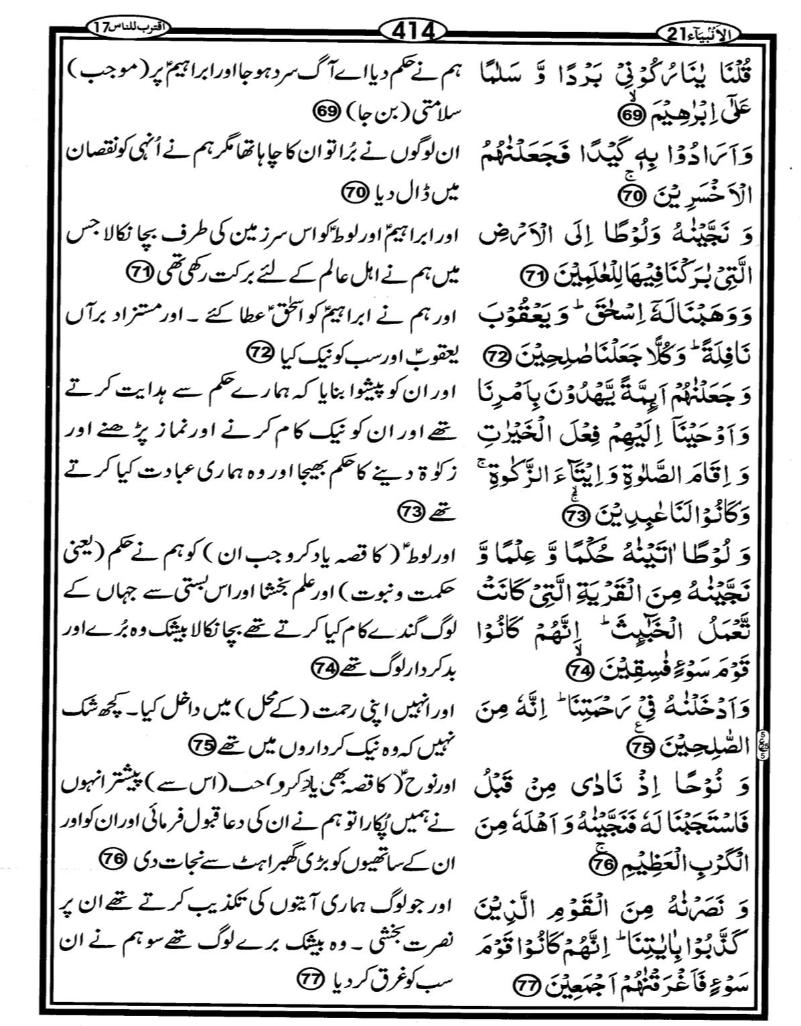 الانبیآء 21
414
اقترب للناس 17
قُلْنَا یٰنَارُ كُوْنِیْ بَرْدًا وَّ سَلٰمًا
عَلٰۤی اِبْرٰهِیْمَ ۙ 69
وَ اَرَادُوْا بِهٖ كَیْدًا فَجَعَلْنٰهُمُ
الْاَخْسَرِیْنَ ۚ 70
وَ نَجَّیْنٰهُ وَ لُوْطًا اِلَی الْاَرْضِ
الَّتِیْ بٰرَكْنَا فِیْهَا لِلْعٰلَمِیْنَ 71
وَ وَهَبْنَا لَهٗۤ اِسْحٰقَ ؕ وَ یَعْقُوْبَ
نَافِلَةً ؕ وَ كُلًّا جَعَلْنَا صٰلِحِیْنَ 72
وَ جَعَلْنٰهُمْ اَىِٕمَّةً یَّهْدُوْنَ بِاَمْرِنَا
وَ اَوْحَیْنَاۤ اِلَیْهِمْ فِعْلَ الْخَیْرٰتِ
وَ اِقَامَ الصَّلٰوةِ وَ اِیْتَآءَ الزَّكٰوةِ ۚ
وَ كَانُوْا لَنَا عٰبِدِیْنَ ۚۙ 73
وَ لُوْطًا اٰتَیْنٰهُ حُكْمًا وَّ عِلْمًا وَّ
نَجَّیْنٰهُ مِنَ الْقَرْیَةِ الَّتِیْ كَانَتْ
تَّعْمَلُ الْخَبٰٓىِٕثَ ؕ اِنَّهُمْ كَانُوْا
قَوْمَ سَوْءٍ فٰسِقِیْنَ ۙ 74
وَ اَدْخَلْنٰهُ فِیْ رَحْمَتِنَا ؕ اِنَّهٗ مِنَ
الصّٰلِحِیْنَ ۠ 75
وَ نُوْحًا اِذْ نَادٰی مِنْ قَبْلُ
فَاسْتَجَبْنَا لَهٗ فَنَجَّیْنٰهُ وَ اَهْلَهٗ مِنَ
الْكَرْبِ الْعَظِیْمِ ۚ 76
وَ نَصَرْنٰهُ مِنَ الْقَوْمِ الَّذِیْنَ
كَذَّبُوْا بِاٰیٰتِنَا ؕ اِنَّهُمْ كَانُوْا قَوْمَ
سَوْءٍ فَاَغْرَقْنٰهُمْ اَجْمَعِیْنَ 77
ہم نے حکم دیا اے آگ سرد ہو جا اور ابراہیمؑ پر (موجب)
سلامتی (بن جا) 69
ان لوگوں نے بُرا تو ان کا چاہا تھا مگر ہم نے اُنہی کو نقصان
میں ڈال دیا 70
اور ابراہیمؑ اور لوطؑ کو اس سرزمین کی طرف بچا نکالا جس
میں ہم نے اہل عالم کے لئے برکت رکھی تھی 71
اور ہم نے ابراہیمؑ کو اسحٰقؑ عطا کئے ۔ اور مستزاد برآں
یعقوبؑ اور سب کو نیک کیا 72
اور ان کو پیشوا بنایا کہ ہمارے حکم سے ہدایت کرتے
تھے اور ان کو نیک کام کرنے اور نماز پڑھنے اور
زکوٰة دینے کا حکم بھیجا اور وہ ہماری عبادت کیا کرتے
تھے 73
اور لوطؑ (کا قصہ یاد کرو جب ان) کو ہم نے حکم (یعنی
حکمت و نبوت) اور علم بخشا اور اس بستی سے جہاں کے
لوگ گندے کام کیا کرتے تھے بچا نکالا بیشک وہ بُرے اور
بدکردار لوگ تھے 74
اور انہیں اپنی رحمت (کے محل) میں داخل کیا۔ کچھ شک
نہیں کہ وہ نیک کرداروں میں تھے 75
اور نوحؑ (کا قصہ بھی یاد کرو) جب (اس سے) پیشتر انہوں
نے ہمیں پُکارا تو ہم نے ان کی دعا قبول فرمائی اور ان کو اور
ان کے ساتھیوں کو بڑی گھبراہٹ سے نجات دی 76
اور جو لوگ ہماری آیتوں کی تکذیب کرتے تھے ان پر
نصرت بخشی ۔ وہ بیشک برے لوگ تھے سو ہم نے ان
سب کو غرق کر دیا 77